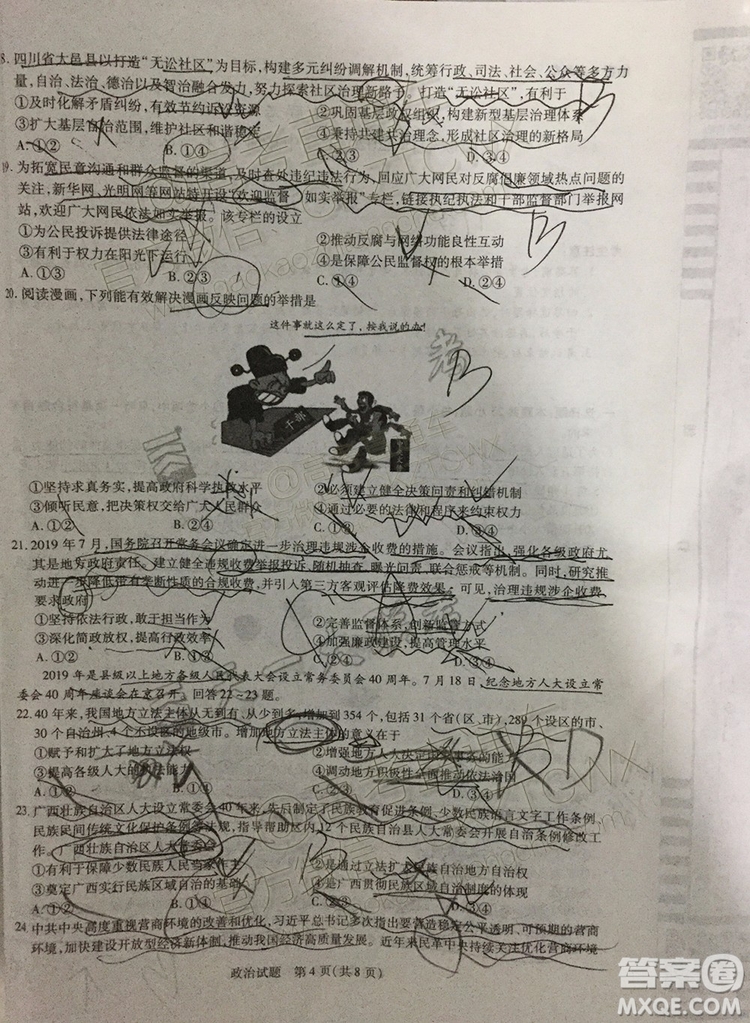 8. 四川省大邑县以打造“无讼社区”为目标，构建多元纠纷调解机制，统筹行政、司法、社会、公众等多方力
量，自治、法治、德治以及智治融合发力，努力探索社区治理新路子。打造“无讼社区”，有利于
①及时化解矛盾纠纷，有效节约诉讼资源 ②巩固基层政权组织，构建新型基层治理体系
③扩大基层自治范围，维护社会和谐稳定 ④秉持共建共治理念，形成社区治理的新格局
A.①② B.②③ C.①④ D.③④
19. 为拓宽民意沟通和群众监督的渠道，及时查处违纪违法行为，回应广大网民对反腐倡廉领域热点问题的
关注，新华网、光明网等网站特开设“欢迎监督 如实举报”专栏，链接执纪执法和干部监督部门举报网
站，欢迎广大网民依法如实举报。该专栏的设立
①为公民投诉提供法律途径 ②推动反腐与网络功能良性互动
③有利于权力在阳光下运行 ④是保障公民监督权的根本举措
A.①③ B.②③ C.①④ D.②④
20. 阅读漫画，下列能有效解决漫画反映问题的举措是
这件事就这么定了，按我说的办！
干部
①坚持求真务实，提高政府科学执政水平 ②必须建立健全决策问责和纠错机制
③倾听民意，把决策权交给广大人民群众 ④通过必要的法律和程序来约束权力
A.①② B.②④ C.①③ D.③④
21. 2019 年 7 月，国务院召开常务会议确定进一步治理违规涉企收费的措施。会议指出，强化各级政府尤
其是地方政府责任。建立健全违规收费举报投诉、随机抽查、曝光问责、联合惩戒等机制。同时，研究进
一步降低带有垄断性质的合规收费，并引入第三方客观评估降费效果。可见，治理违规涉企收费
要求政府
①坚持依法行政，敢于担当作为 ②完善监督体系，创新监管方式
③深化简政放权，提高行政效率 ④加强廉政建设，提高工作质量
A.①② B.①③ C.②④ D.③④
2019 年是县级以上地方各级人民代表大会设立常务委员会 40 周年。7 月 18 日，纪念地方人大设立常
委会 40 周年座谈会在京召开。回答 22～23题。
22. 40 年来，我国地方立法主体从无到有、从少到多，增加到 354 个，包括 31 个省（区、市），289 个设区的市、
30 个自治州、4 个不设区的地级市。增加地方立法主体的意义在于
①赋予和扩大了地方立法权 ②增强地方人大决定
③提高各级人大的立法能力 ④调动地方积极性全面推动依法治国
A.①② B. C.①③
23. 广西壮族自治区人大设立常委会 40 年来，先后制定了民族教育促进条例、少数民族语言文字工作条例、
民族民间传统文化保护条例等法规，指导帮助区内12 个民族自治县人大常委会开展自治条例修改工
作。广西壮族自治区人大常委会
①有利于保障少数民族人民当家作主 ②是通过立法扩大民族自治权
③奠定广西实行民族区域自治的基础 ④是广西贯彻民族区域自治制度的体现
24. 中共中央高度重视营商环境的改善和优化，习近平总书记多次指出要营造稳定公平透明、可预期的营商
环境，加快建设开放型经济新体制，推动我国经济高质量发展。近年来民革中央持续关注优化营商环境
政治试题 第 4 页(共 8 页)
答案圈
MXQE.COM